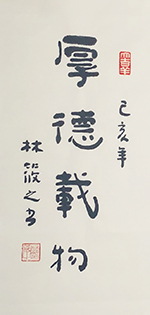 己亥年
厚德載物
林筱之書